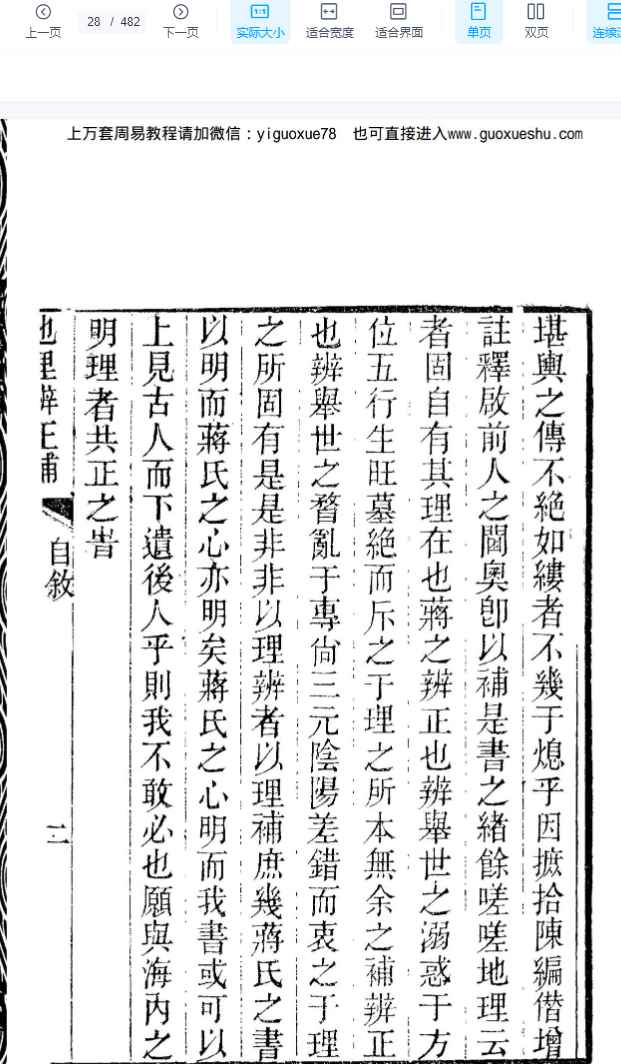 上一页
28 / 482
下一页
实际大小
适合宽度
适合界面
单页
双页
连续
上万套周易教程请加微信：yiguoxue78 也可直接进入www.guoxueshu.com
堪輿之傳不絶如縷者不幾于熄乎因摭拾陳編僣增
註釋啟前人之閫奥卽以補是書之緒餘嗟嗟地理云
者固自有其理在也蔣之辨正也辨舉世之溺惑于方
位五行生旺墓絶而斥之于理之所本無余之補辨正
也辨舉世之瞀亂于專尙三元陰陽差錯而衷之于理
之所固有是是非非以理辨者以理補庶幾蔣氏之書
以明而蔣氏之心亦明矣蔣氏之心明而我書或可以
上見古人而下遺後人乎則我不敢必也願與海内之
明理者共正之旹
地理辨正補
自敘
二